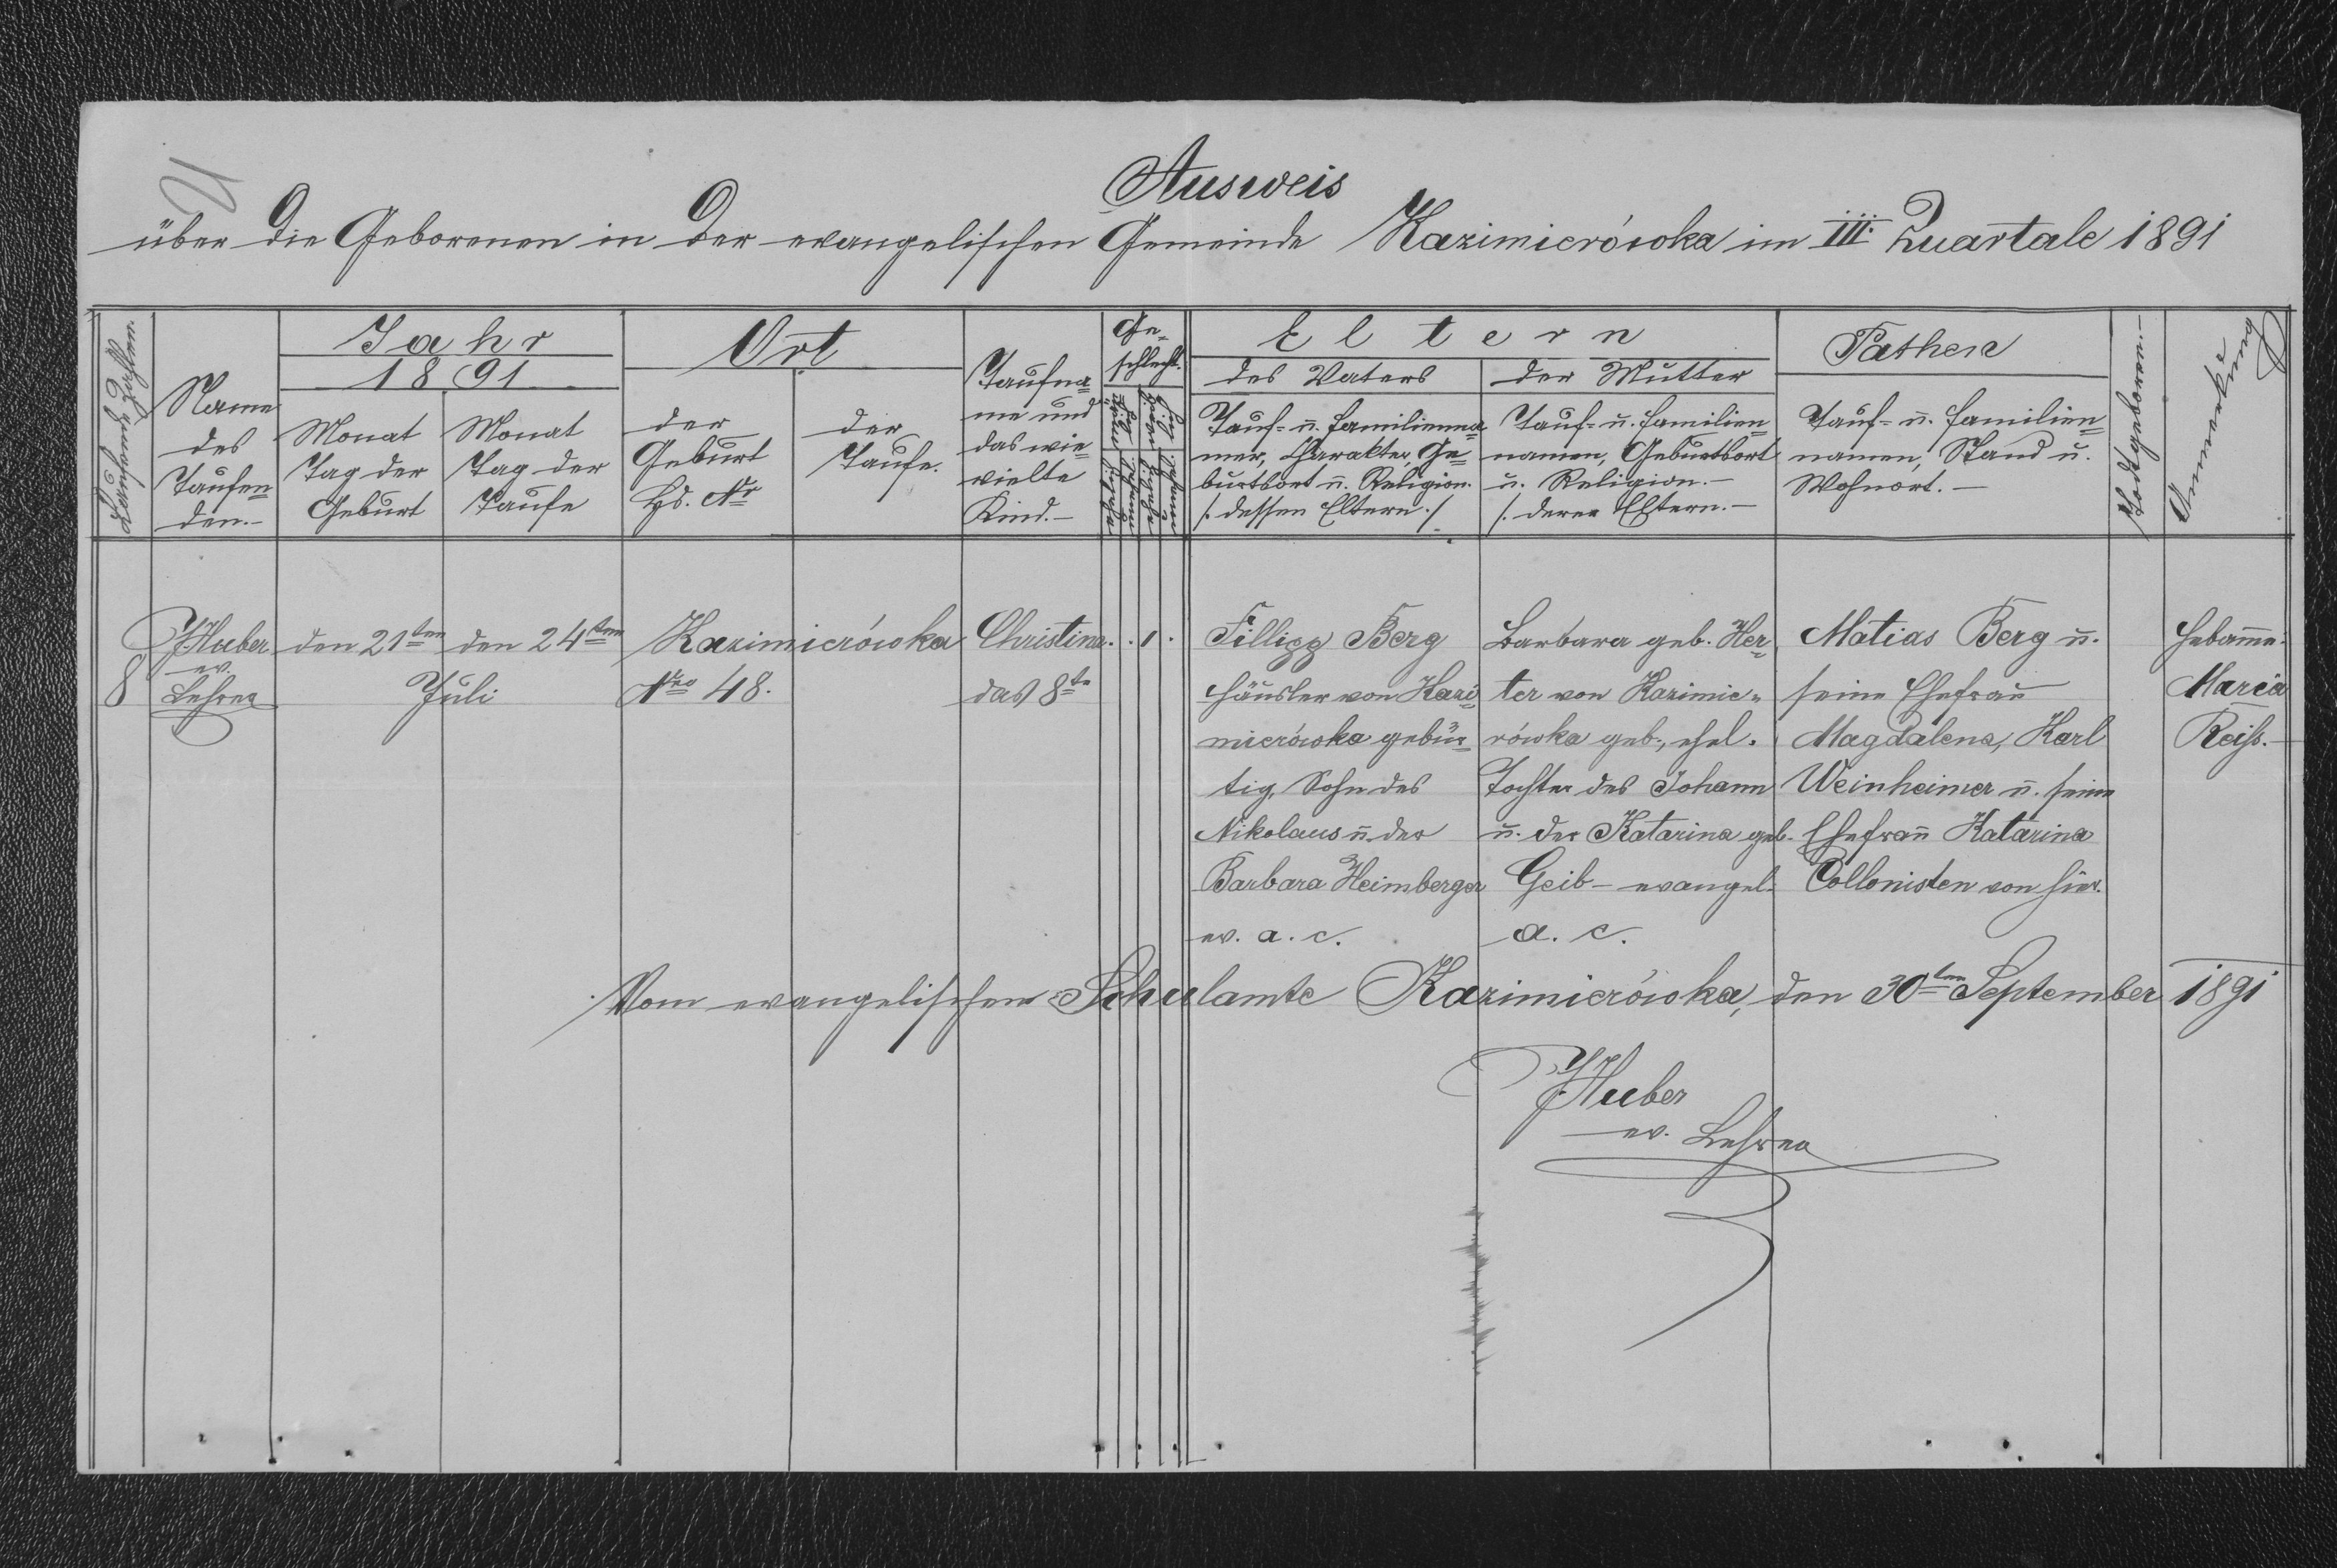 Ausweis
über die Geborenen in der evangelischen Gemeinde Kazimierówka im III. Quartale 1891
Laufende Zahlen.
Name
des
Taufen=
den.—
Jahr
1891
Monat
Tag der
Geburt
Monat
Tag der
Taufe
Ort
der
Geburt
Hs. Nr
der
Taufe.
Taufna=
me und
das wie=
vielte
Kind.—
Ge=
schlecht.
Eltern
des Vaters
Tauf- u. Familienna=
men, Charakter, Ge=
burtsort u. Religion.
/. dessen Eltern ./
der Mutter
Tauf- u. Familien=
namen, Geburtsort
u. Religion.—
/. deren Eltern.—
Pathen
Tauf- u. Familien=
namen, Stand u.
Wohnort.—
Todtgeboren.—
Anmerkung
8
J. Huber
ev.
Lehrer
den 21ten
den 24ten
Juli
Kazimierówka
Nro 48.
Christina
das 8te
. . 1 .
Fillipp Berg
Häusler von Kazi=
mierówka gebür=
tig, Sohn des
Nikolaus u. der
Barbara Heimberger
ev. a. c.
Barbara geb. Her=
ter von Kazimie=
rówka geb., ehel.
Tochter des Johann
u. der Katarina geb.
Geib – evangel.
a. c.
Matias Berg u.
seine Ehefrau
Magdalena, Karl
Weinheimer u. seine
Ehefrau Katarina
Collonisten von hier.
Hebamme.
Maria
Reiß.—
Vom evangelischen Schulamte Kazimierówka, den 30ten September 1891
J. Huber
ev. Lehrer